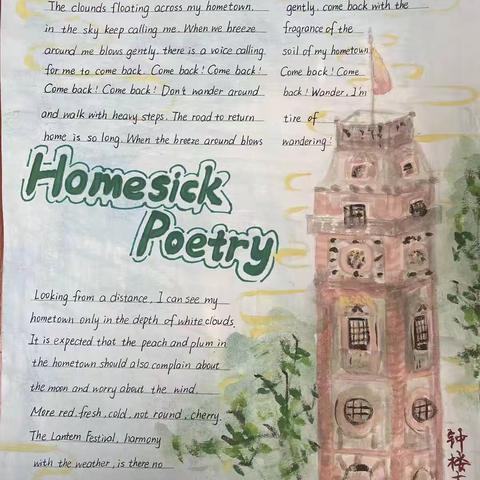 The clounds floating across my hometown.
in the sky keep calling me. When we breeze
around me blows gently. there is a voice calling
for me to come back. Come back! Come back!
Come back! Come back! Don't wander around
and walk with heavy steps. The road to return
home is so long. When the breeze around blows
gently. come back with the
fragrance of the
soil of my hometown
Come back! Come
back! Wander, I'm
tire of
wandering!
Homesick
Poetry
Looking from a distance, I can see my
hometown only in the depth of white clouds.
It is expected that the peach and plum in
the hometown should also complain about
the moon and worry about the wind.
More red, fresh, cold, not round, cherry.
The Lantern Festival, harmony
with the weather, is there no
钟
楼